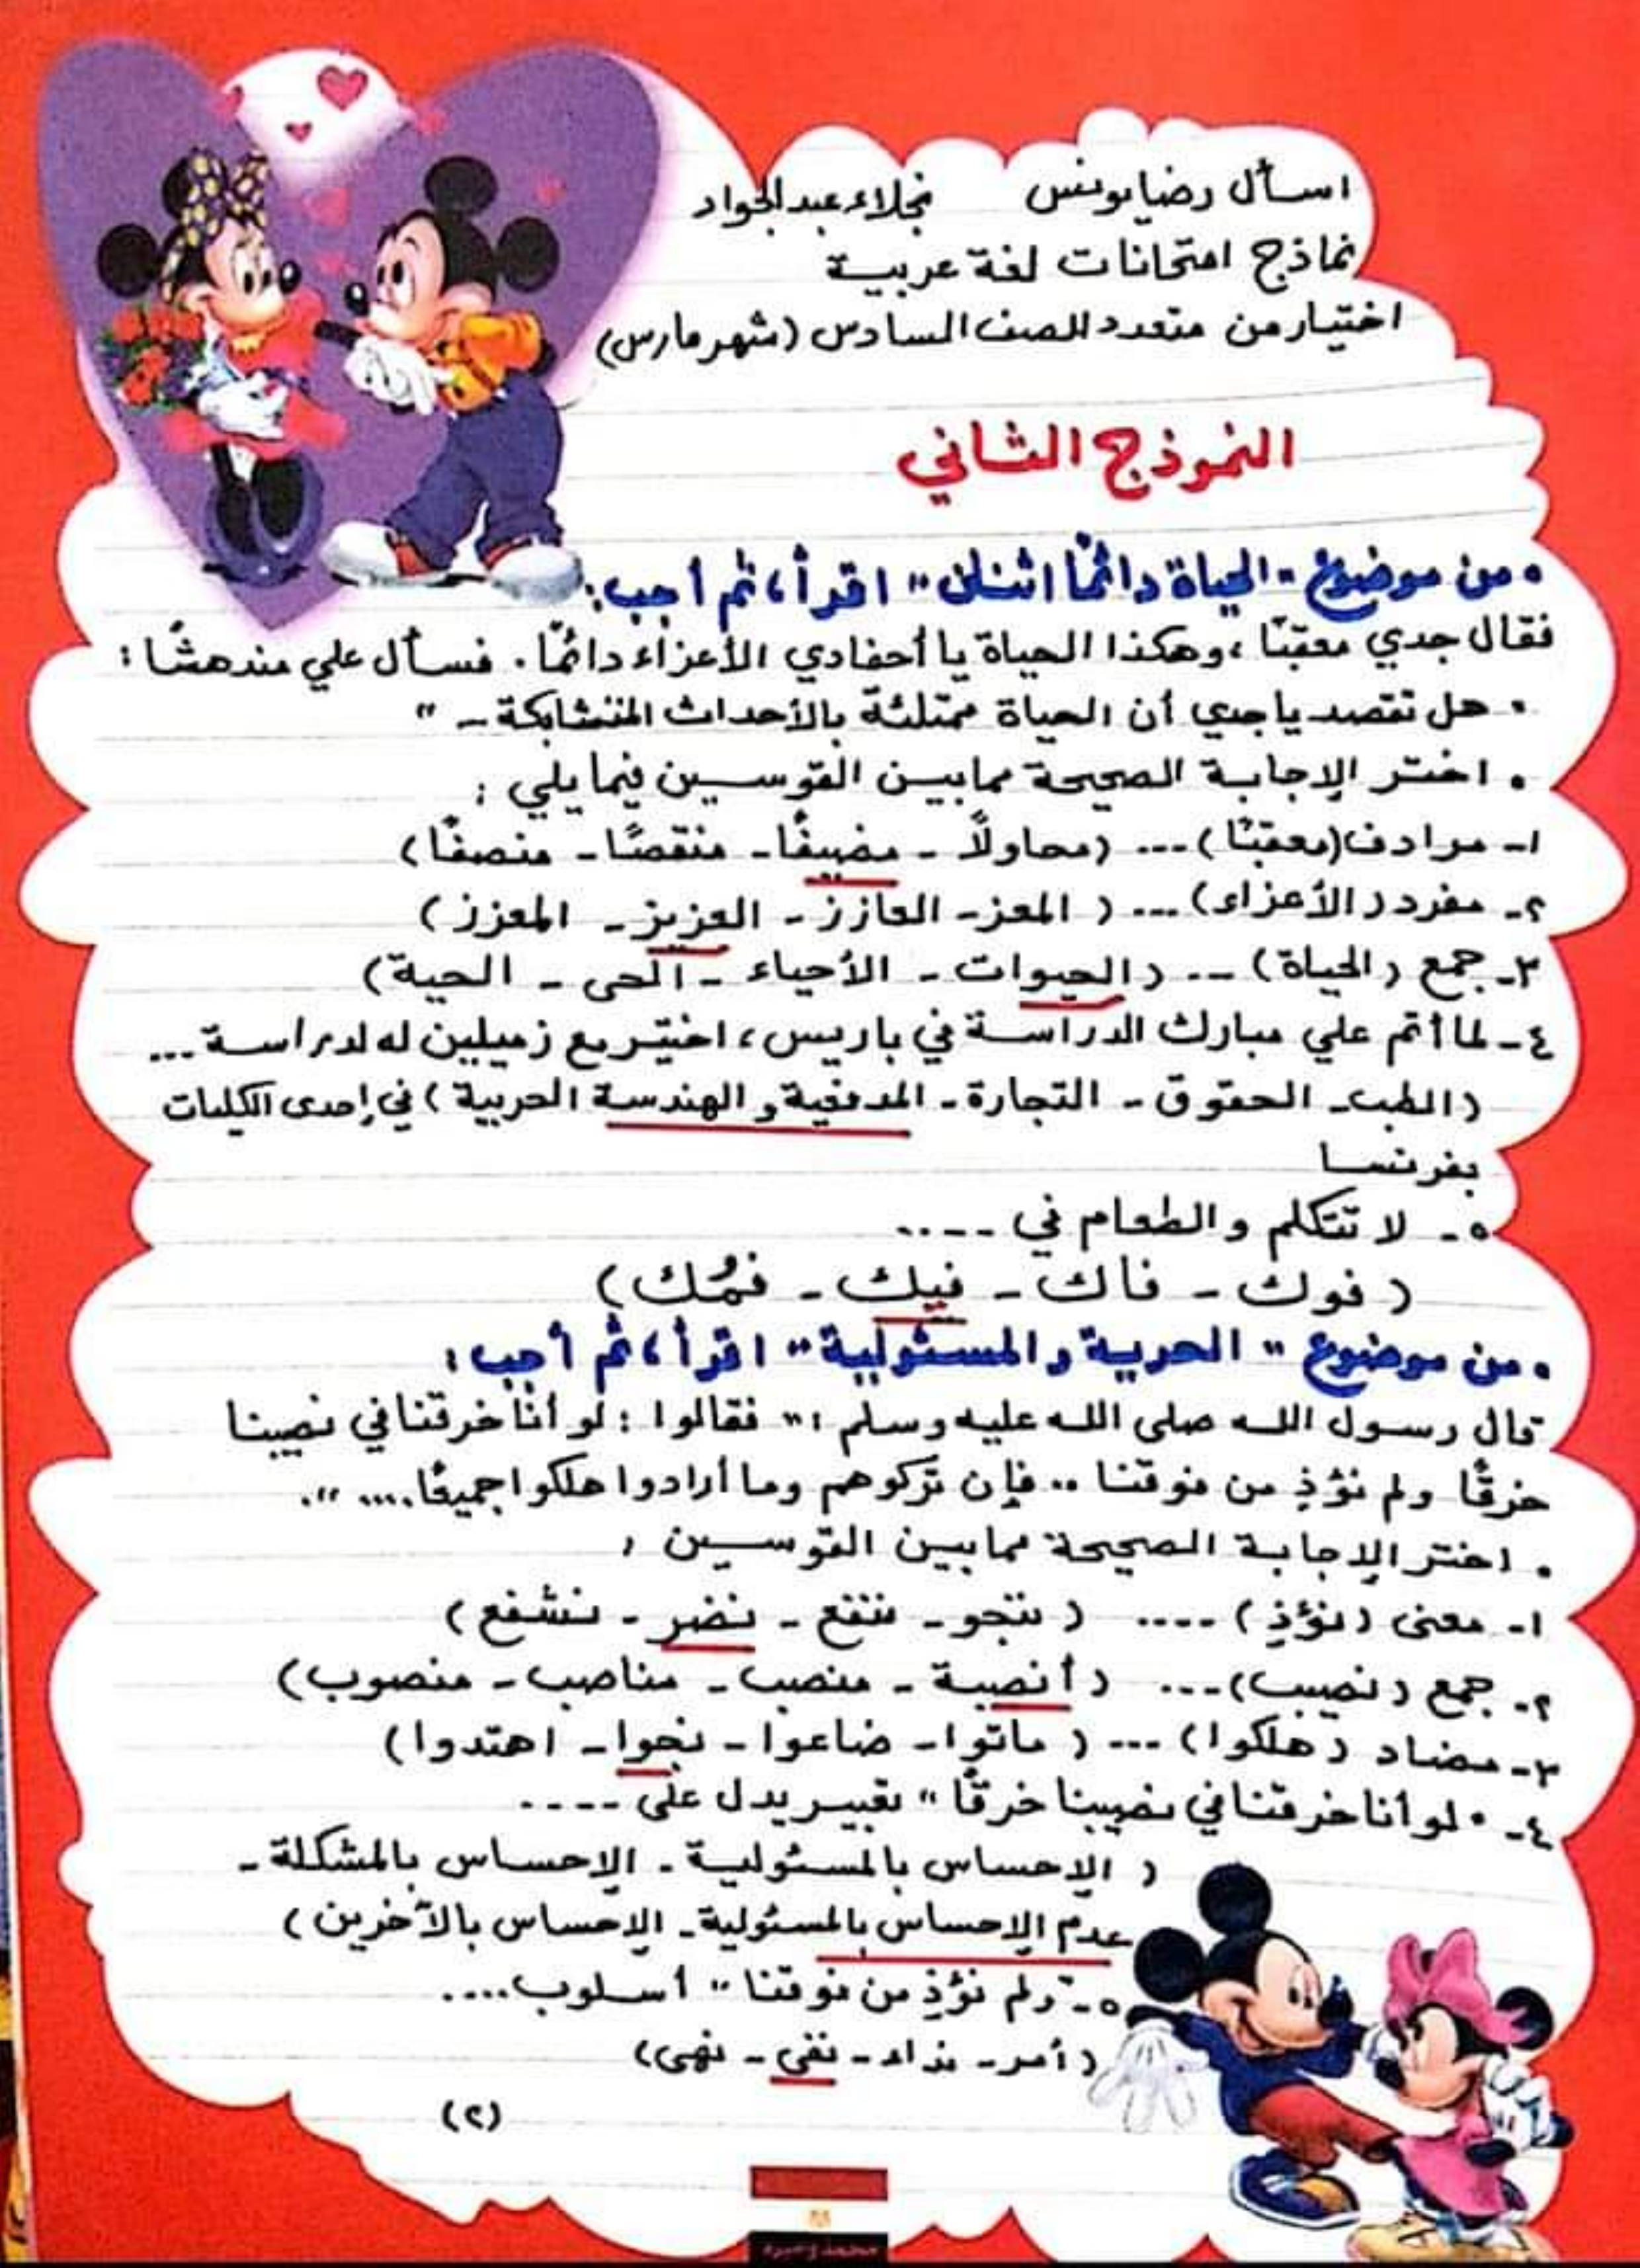 اسأل رضا يونس نجلاء عبدالجواد
نماذج امتحانات لغة عربية
اختيار من متعدد للصف السادس (شهر مارس)
النموذج الثاني
• من موضوع "الحياة دائمًا اثنان" اقرأ، ثم أجب:
فقال جدي معقبًا، وهكذا الحياة يا أحفادي الأعزاء دائمًا. فسأل علي مندهشًا:
• هل تقصد يا جدي أن الحياة ممتلئة بالأحداث المتشابكة - "
• اختر الإجابة الصحيحة مما بين القوسين فيما يلي:
١- مرادف (معقبًا) ... (محاولًا - مضيفًا - منقصًا - منصفًا)
٢- مفرد (الأعزاء) ... (المعز - العازز - العزيز - المعزز)
٣- جمع (الحياة) ... (الحيوات - الأحياء - الحى - الحية)
٤- لما أتم علي مبارك الدراسة في باريس، اختير مع زميلين له لدراسة ...
(الطب - الحقوق - التجارة - المدفعية والهندسة الحربية) في إحدى الكليات
بفرنسا
٥- لا تتكلم والطعام في ....
(فوك - فاك - فيك - فمُك)
• من موضوع "الحرية والمسئولية" اقرأ، ثم أجب:
قال رسول الله صلى الله عليه وسلم: "فقالوا: لو أنا خرقنا في نصيبنا
خرقًا ولم نؤذِ من فوقنا .. فإن تركوهم وما أرادوا هلكوا جميعًا....".
• اختر الإجابة الصحيحة مما بين القوسين:
١- معنى (نؤذِ) .... (ننجو - ننفع - نضر - نشفع)
٢- جمع (نصيب) ... (أنصبة - منصب - مناصب - منصوب)
٣- مضاد (هلكوا) ... (ماتوا - ضاعوا - نجوا - اهتدوا)
٤- "لو أنا خرقنا في نصيبنا خرقًا" تعبير يدل على ....
(الإحساس بالمسئولية - الإحساس بالمشكلة -
عدم الإحساس بالمسئولية - الإحساس بالآخرين)
٥- "ولم نؤذِ من فوقنا" أسلوب....
(أمر - نداء - نفي - نهى)
(٢)